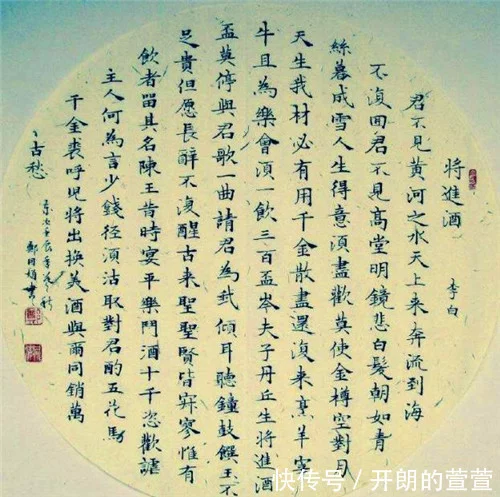 將進酒
李白
君不見黃河之水天上来奔流到海
不復回君不見高堂明鏡悲白髮朝如青
絲暮成雪人生得意須盡歡莫使金樽空對月
天生我材必有用千金散盡還復来烹羊宰
牛且為樂會須一飲三百盃岑夫子丹丘生將進酒
盃莫停與君歌一曲請君為我傾耳聽鐘鼓饌玉不
足貴但愿長醉不復醒古来聖聖賢皆寂寥惟有
飲者留其名陳王昔時宴平樂鬥酒十千恣歡謔
主人何為言少錢径須沽取對君酌五花馬
千金裘呼児將出換美酒與爾同銷萬
古愁
快传号 / 开朗的萱萱